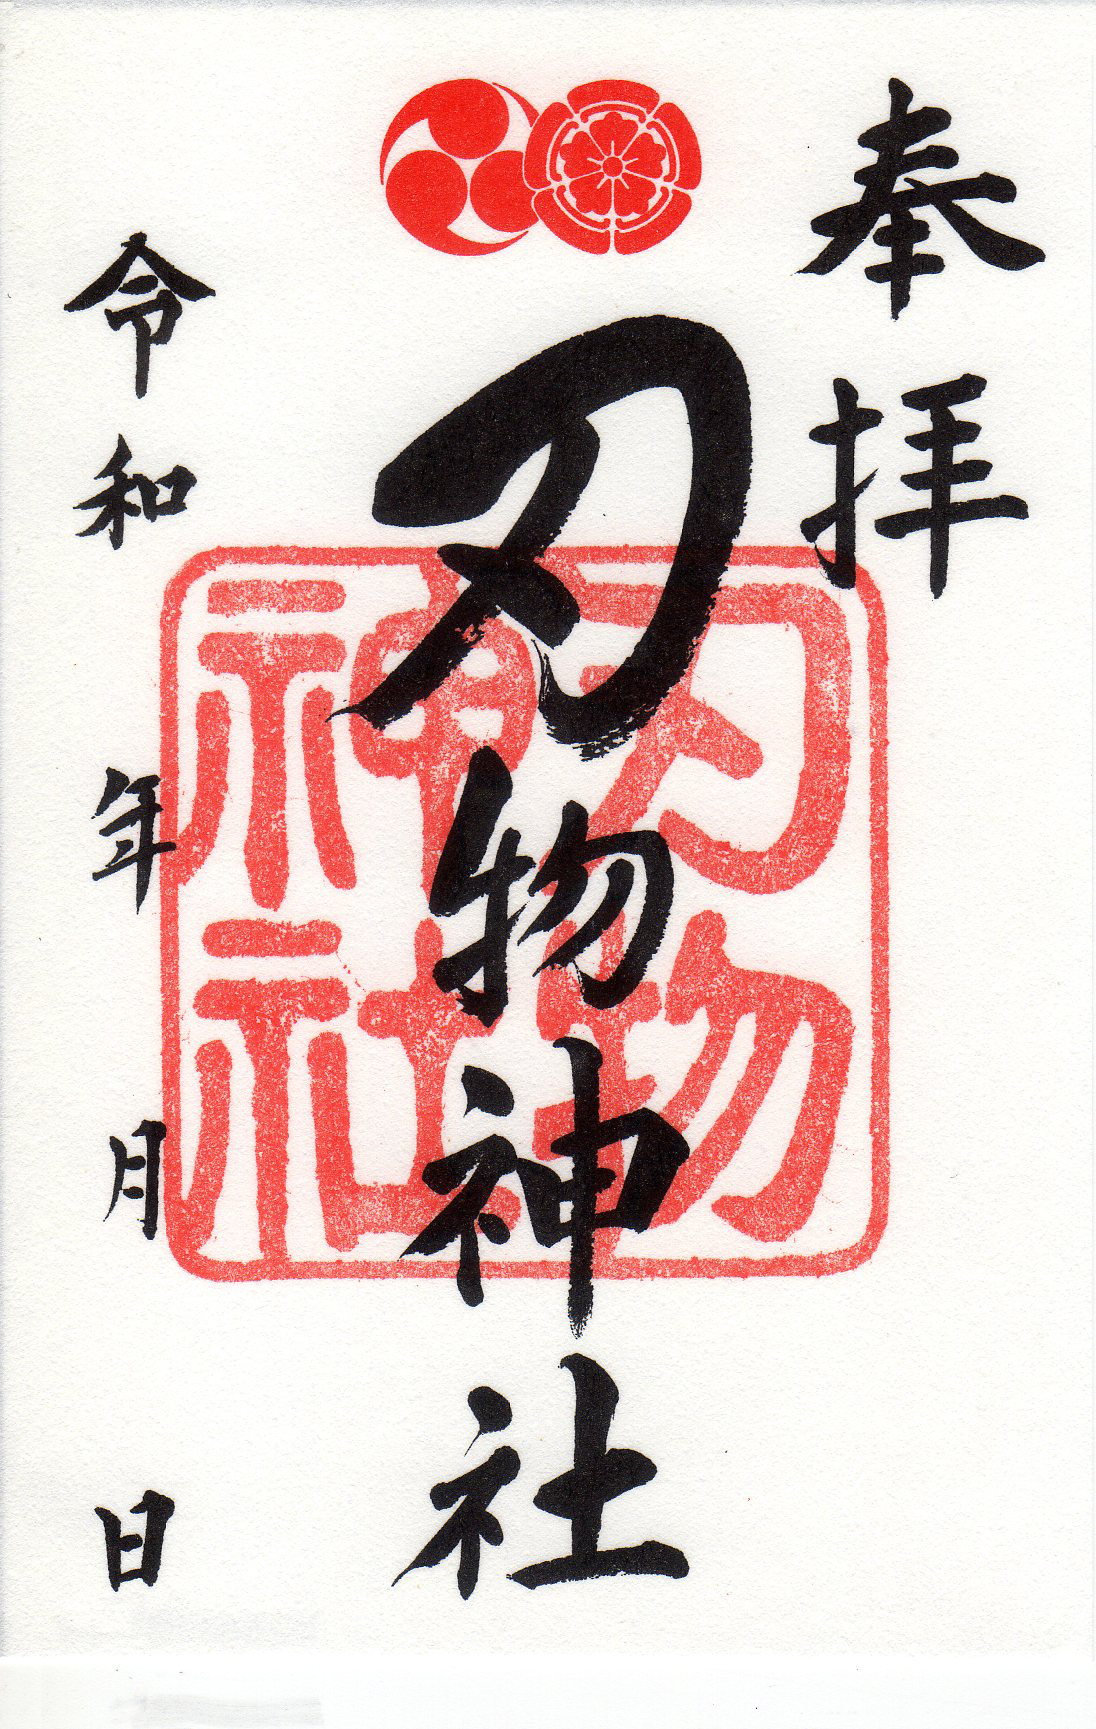 奉拝
刃物神社
刃物
神社
令和 年 月 日